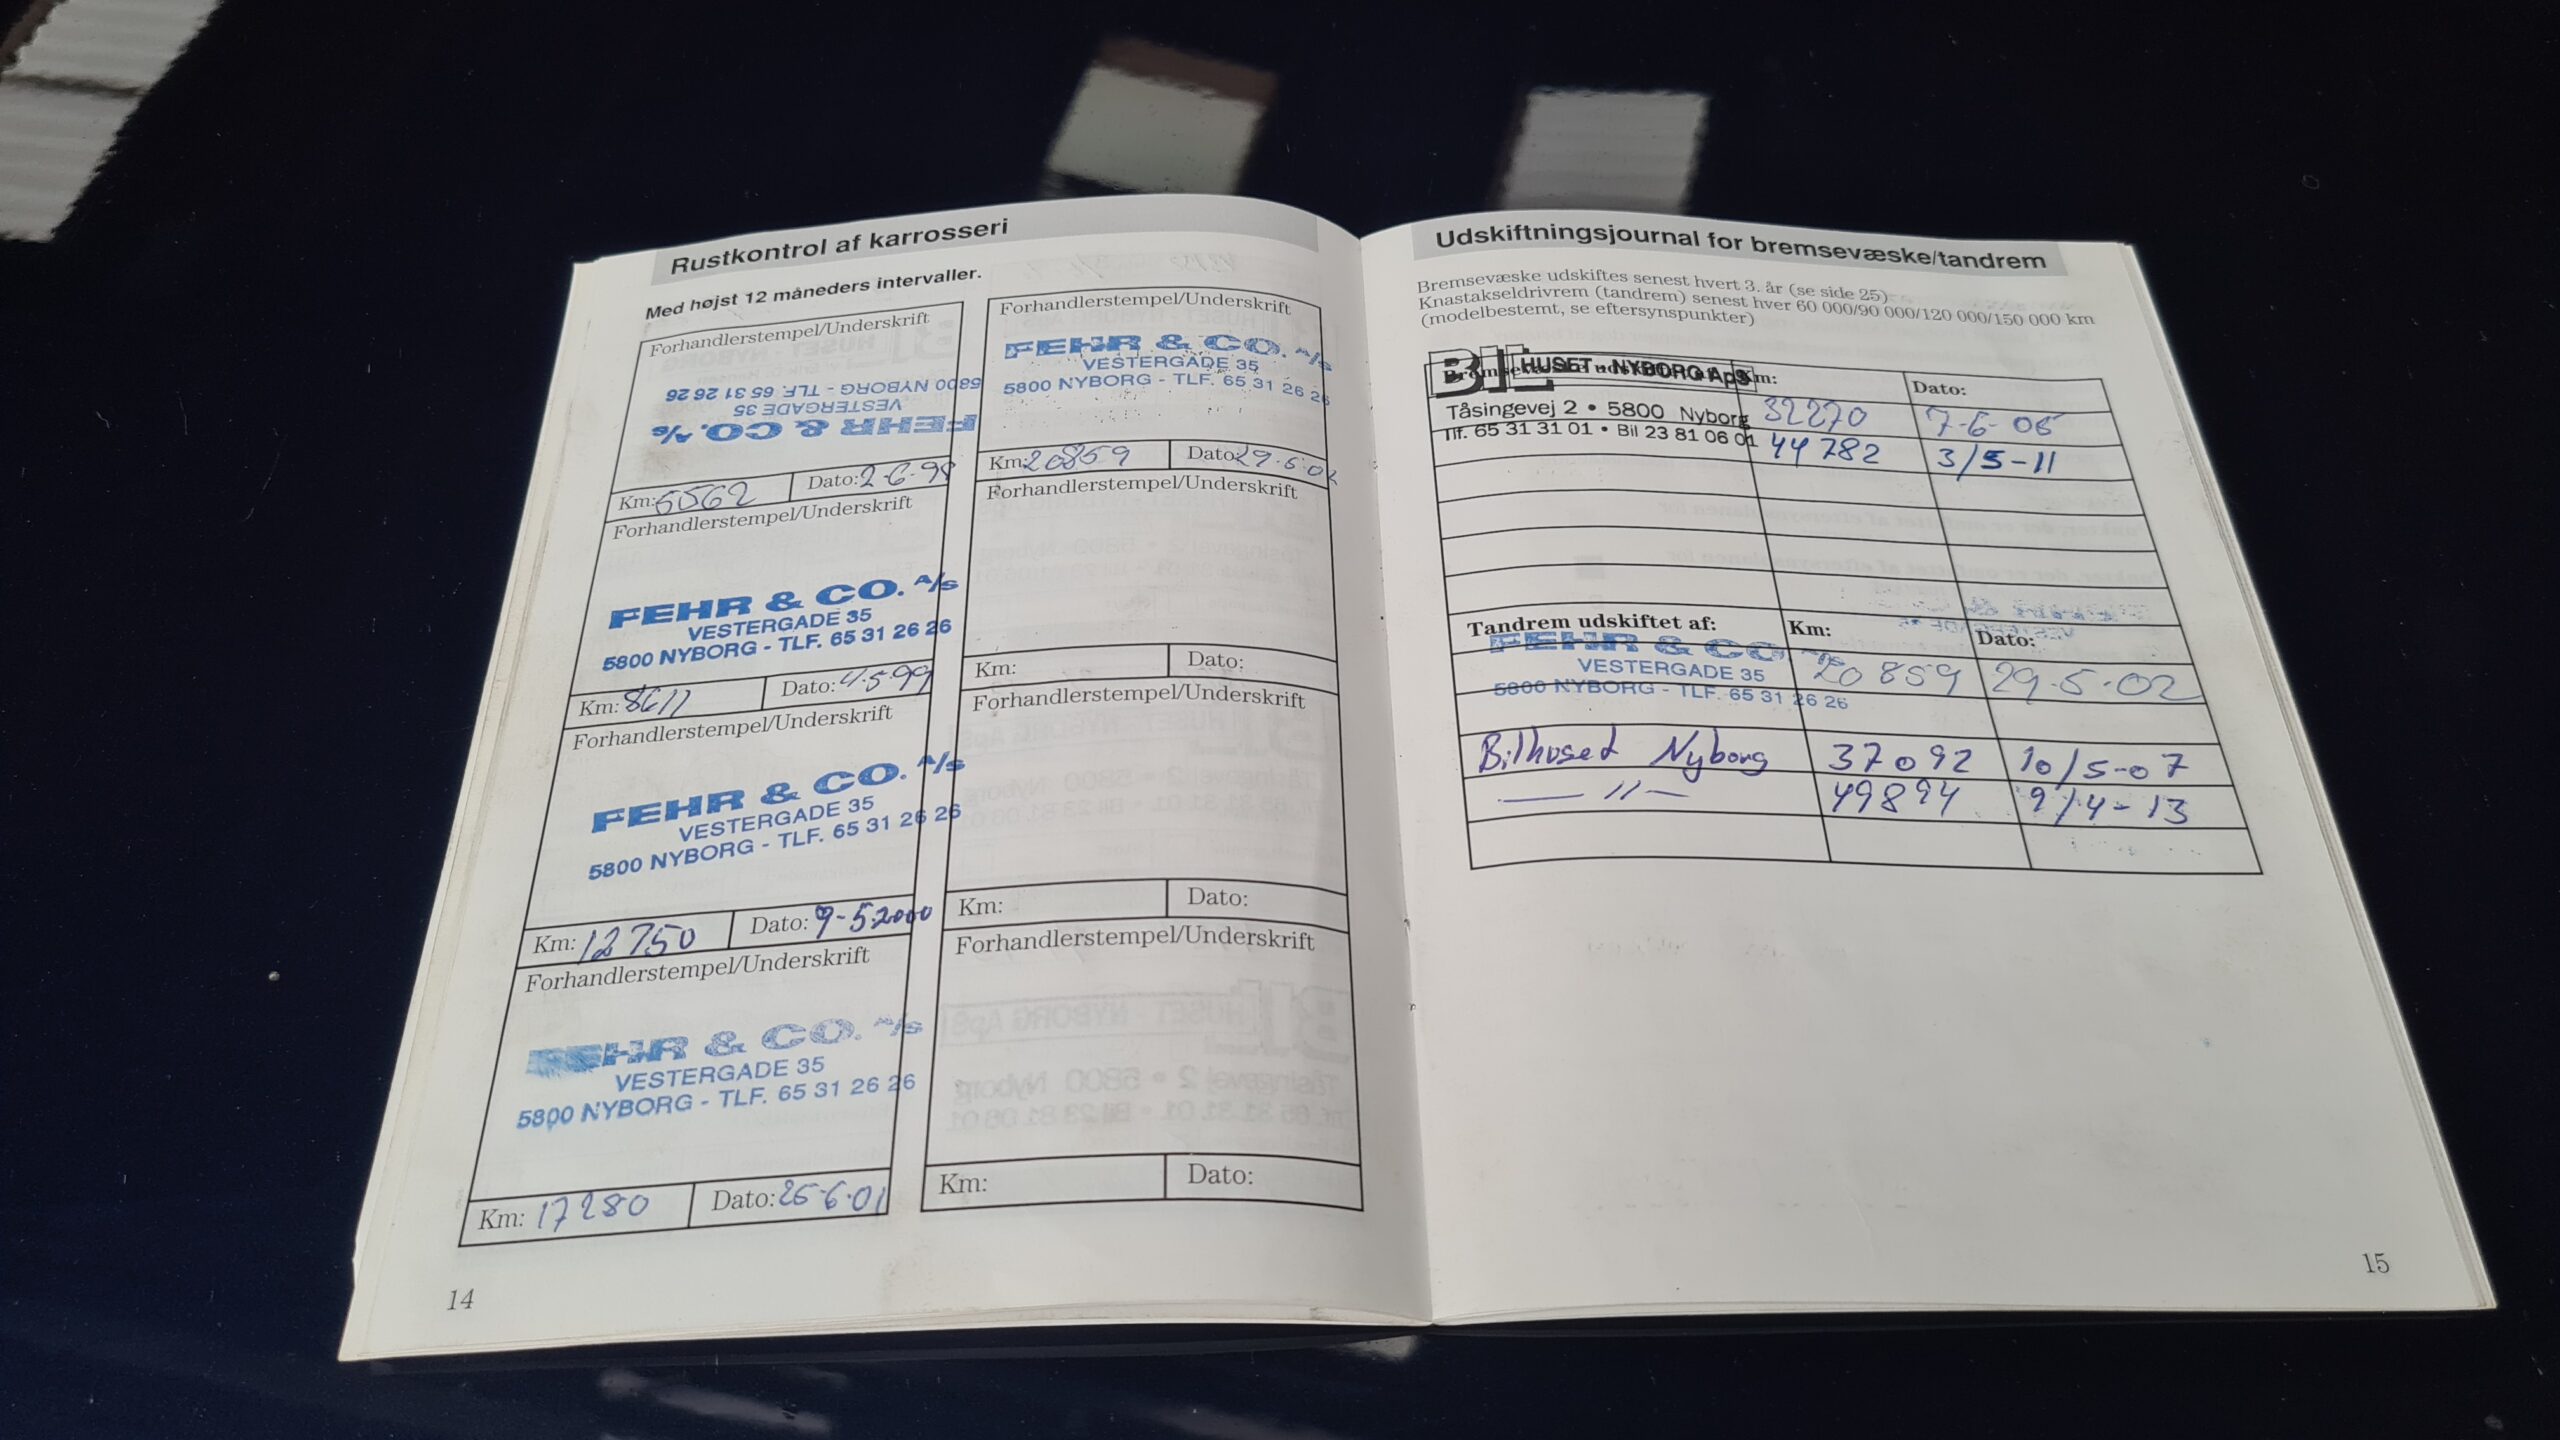 Rustkontrol af karrosseri
Med højst 12 måneders intervaller.
Forhandlerstempel/Underskrift
FEHR & CO. A/S
VESTERGADE 35
5800 NYBORG - TLF. 65 31 26 26
Km: 5562 Dato: 2-6-98
Forhandlerstempel/Underskrift
FEHR & CO. A/S
VESTERGADE 35
5800 NYBORG - TLF. 65 31 26 26
Km: 8611 Dato: 4.5.99
Forhandlerstempel/Underskrift
FEHR & CO. A/S
VESTERGADE 35
5800 NYBORG - TLF. 65 31 26 26
Km: 12750 Dato: 9-5.2000
Forhandlerstempel/Underskrift
FEHR & CO. A/S
VESTERGADE 35
5800 NYBORG - TLF. 65 31 26 26
Km: 17280 Dato: 25-6-01
14
Forhandlerstempel/Underskrift
FEHR & CO. A/S
VESTERGADE 35
5800 NYBORG - TLF. 65 31 26 26
Km: 20859 Dato: 29.5.02
Forhandlerstempel/Underskrift
Km: Dato:
Forhandlerstempel/Underskrift
Km: Dato:
Forhandlerstempel/Underskrift
Km: Dato:
Udskiftningsjournal for bremsevæske/tandrem
Bremsevæske udskiftes senest hvert 3. år (se side 25)
Knastakseldrivrem (tandrem) senest hver 60 000/90 000/120 000/150 000 km
(modelbestemt, se eftersynspunkter)
BIL HUSET - NYBORG ApS Km: Dato:
Tåsingevej 2 • 5800 Nyborg 32270 7-6-05
Tlf. 65 31 31 01 • Bil 23 81 06 01 44782 3/5-11
Tandrem udskiftet af: Km: Dato:
FEHR & CO. A/S 20859 29.5.02
VESTERGADE 35
5800 NYBORG - TLF. 65 31 26 26
Bilhuset Nyborg 37092 10/5-07
— 11 — 49894 9/4-13
15